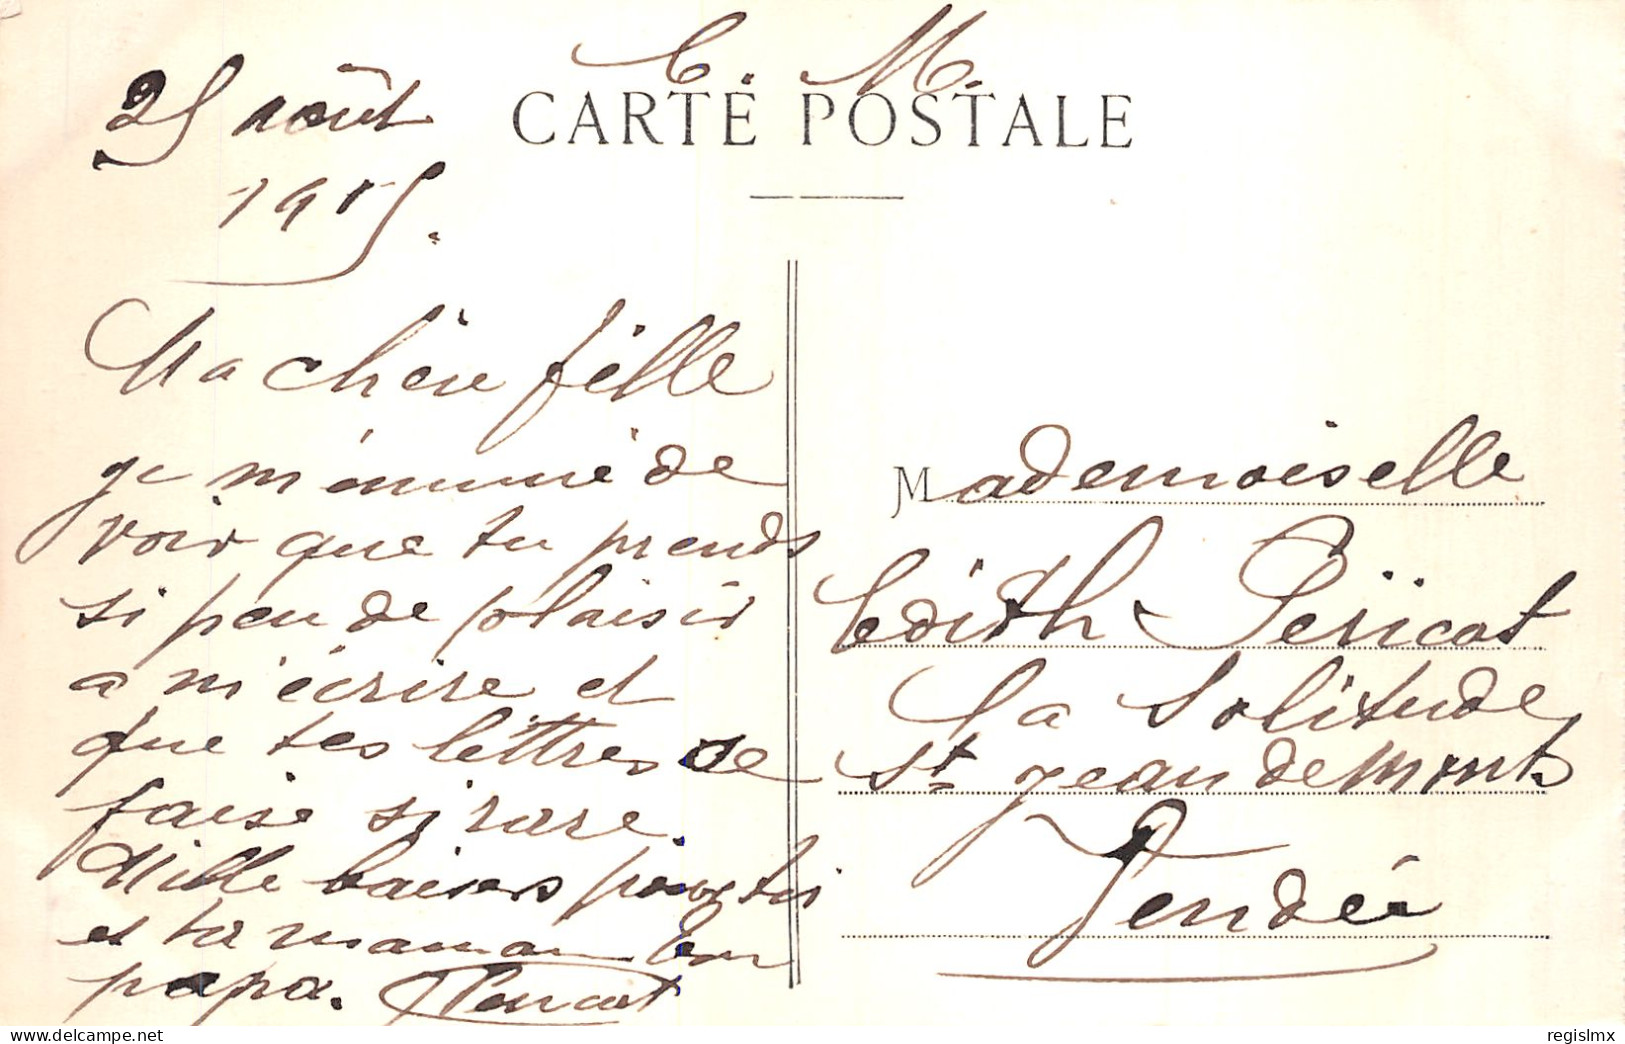 C. M.
CARTE POSTALE
25 août
1915.
Ma chère fille
je m'ennuie de
voir que tu prends
si peu de plaisir
a m'écrire et
que tes lettres se
faise si rare.
Mille baisers pour toi
et ta maman ton
papa. Pericat
Mademoiselle
Edith Péricat
La Solitude
St Jean de Monts
Vendée
regislmx